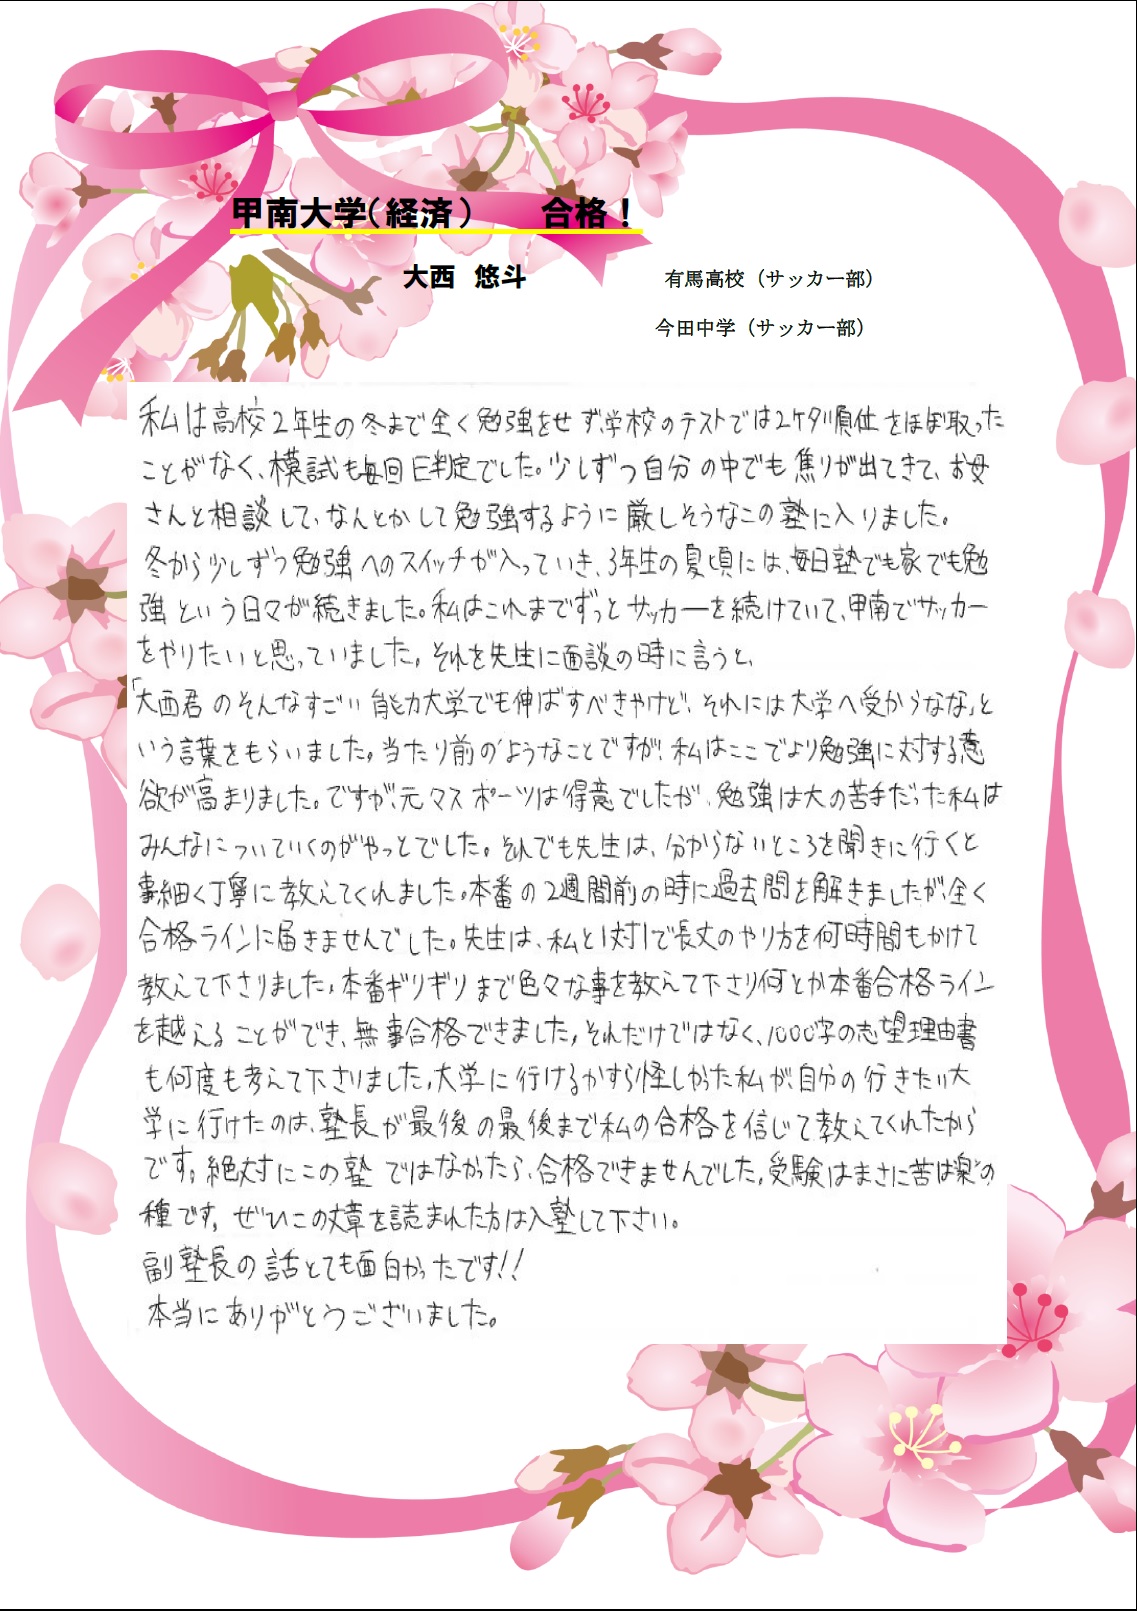 甲南大学(経済)　合格！
大西　悠斗
有馬高校（サッカー部）
今田中学（サッカー部）
私は高校2年生の冬まで全く勉強をせず、学校のテストでは2ケタ順位をほぼ取った
ことがなく、模試も毎回E判定でした。少しずつ自分の中でも焦りが出てきて、お母
さんと相談して、なんとかして勉強するように厳しそうなこの塾に入りました。
冬から少しずつ勉強へのスイッチが入っていき、3年生の夏頃には、毎日塾でも家でも勉
強という日々が続きました。私はこれまでずっとサッカーを続けていて、甲南でサッカー
をやりたいと思っていました。それを先生に面談の時に言うと、
「大西君のそんなすごい能力大学でも伸ばすべきやけど、それには大学へ受からなな」と
いう言葉をもらいました。当たり前のようなことですが、私はここでより勉強に対する意
欲が高まりました。ですが、元々スポーツは得意でしたが、勉強は大の苦手だった私は
みんなについていくのがやっとでした。それでも先生は、分からないところを聞きに行くと
事細く丁寧に教えてくれました。本番の2週間前の時に過去問を解きましたが、全く
合格ラインに届きませんでした。先生は、私と1対1で長文のやり方を何時間もかけて
教えて下さりました。本番ギリギリまで色々な事を教えて下さり何とか本番合格ライン
を越えることができ、無事合格できました。それだけではなく、1000字の志望理由書
も何度も考えて下さりました。大学に行けるかすら怪しかった私が、自分の行きたい大
学に行けたのは、塾長が最後の最後まで私の合格を信じて教えてくれたから
です。絶対にこの塾ではなかったら、合格できませんでした。受験はまさに苦は楽の
種です。ぜひこの文章を読まれた方は入塾して下さい。
副塾長の話とても面白かったです!!
本当にありがとうございました。